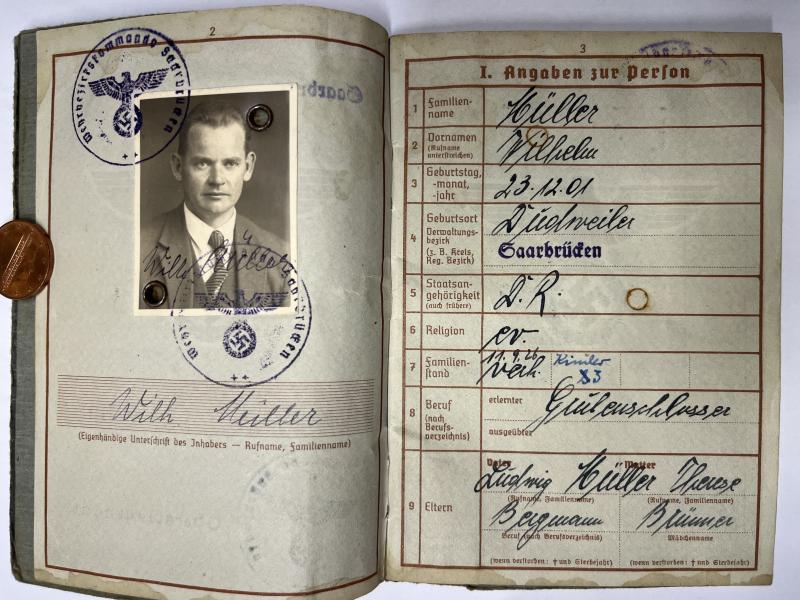 2
Wehrbezirkskommando Saarbrücken
Wilh. Müller
Wilh Müller
(Eigenhändige Unterschrift des Inhabers — Rufname, Familienname)
3
I. Angaben zur Person
1 Familien-
name
Müller
2 Vornamen
(Rufname
unterstreichen)
Wilhelm
3 Geburtstag,
-monat,
-jahr
23.12.01
4 Geburtsort
Verwaltungs-
bezirk
(z. B. Kreis,
Reg. Bezirk)
Dudweiler
Saarbrücken
5 Staatsan-
gehörigkeit
(auch frühere)
D.R.
6 Religion
ev.
7 Familien-
stand
11.9.26
verh.
Kinder
3
8 Beruf
(nach
Berufs-
verzeichnis)
erlernter
Grubenschlosser
ausgeübter
9 Eltern
Vater
Mutter
Ludwig Müller Therese
(Rufname, Familienname)
(Rufname, Familienname)
Bergmann
Brünner
Beruf (nach Berufsverzeichnis)
Mädchenname
(wenn verstorben: † und Sterbejahr)
(wenn verstorben: † und Sterbejahr)